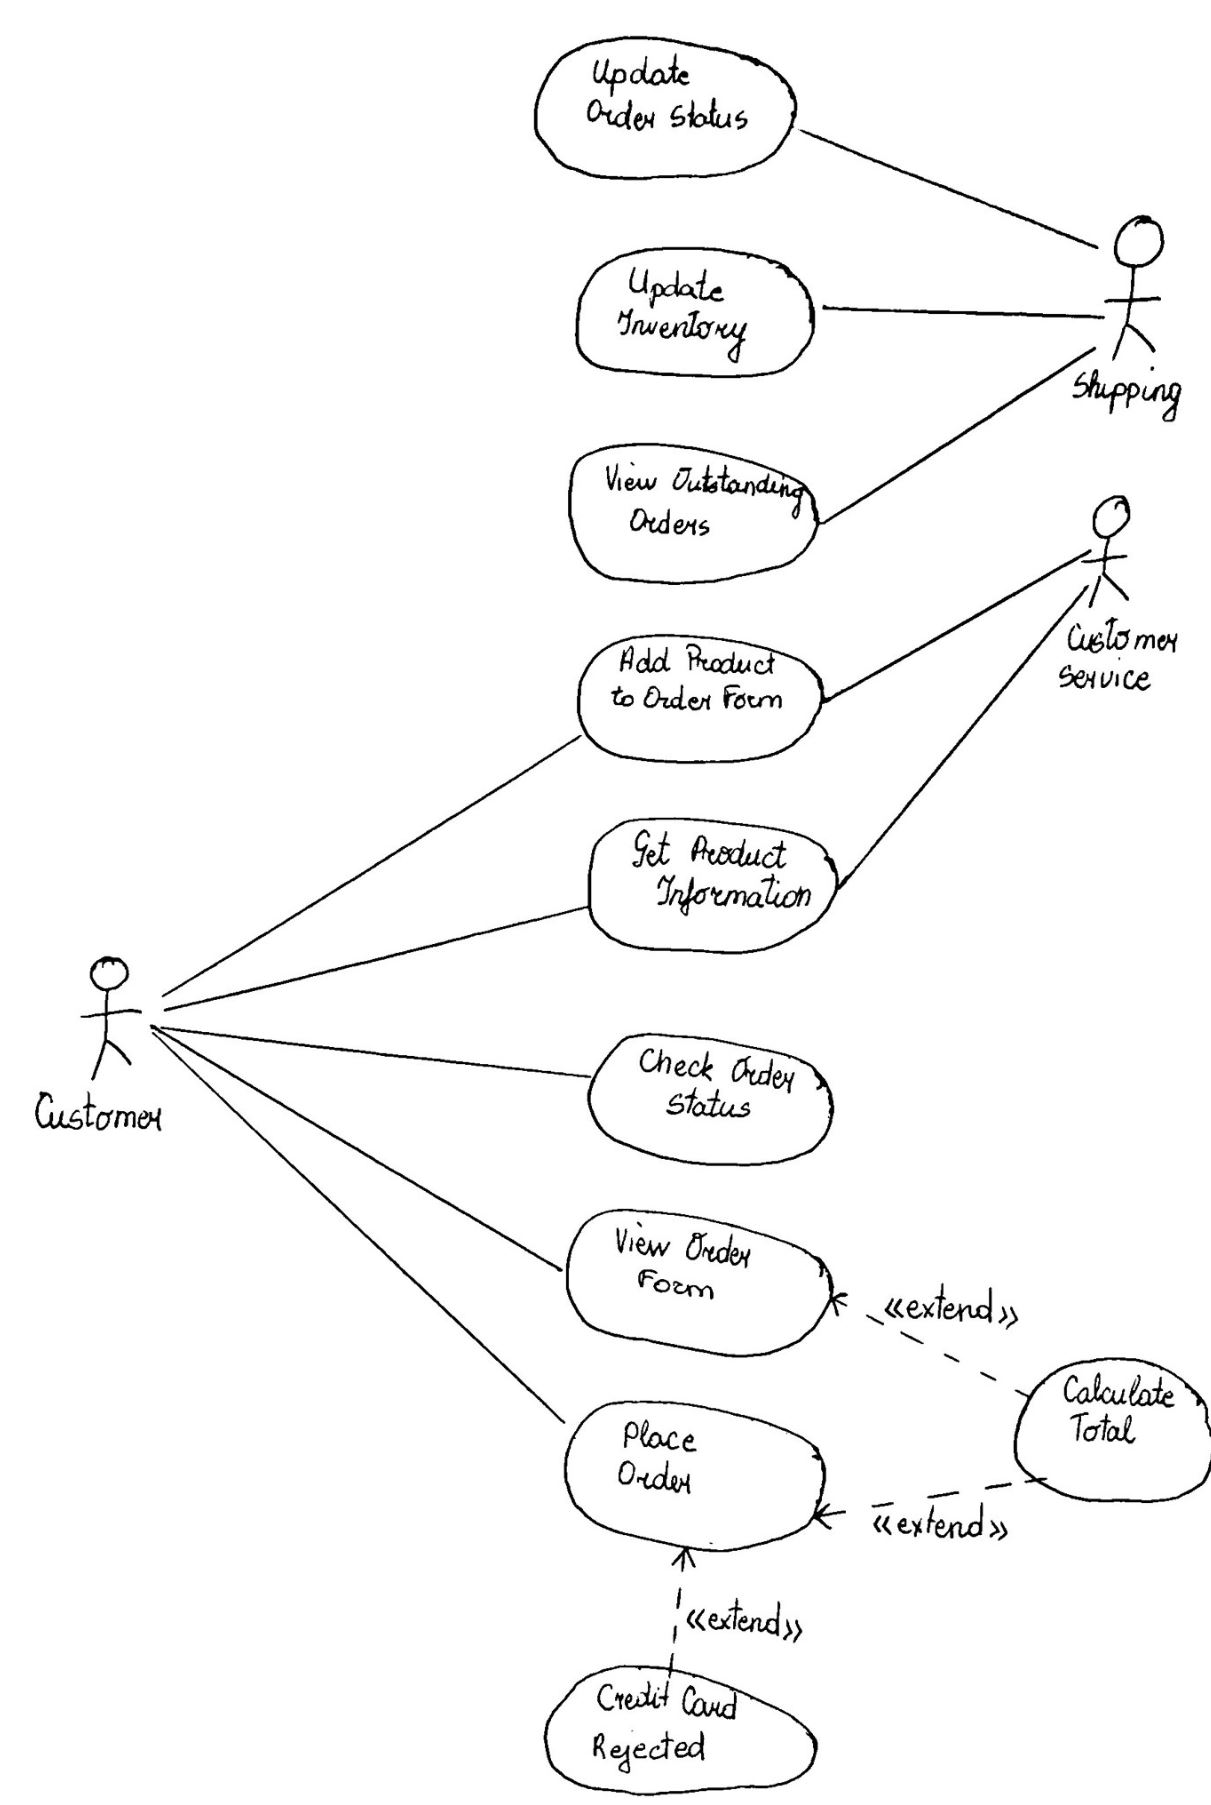 Update
Order Status
Update
Inventory
Shipping
View Outstanding
Orders
Customer
Service
Add Product
to Order Form
Get Product
Information
Customer
Check Order
Status
View Order
Form
«extend»
Calculate
Total
Place
Order
«extend»
«extend»
Credit Card
Rejected